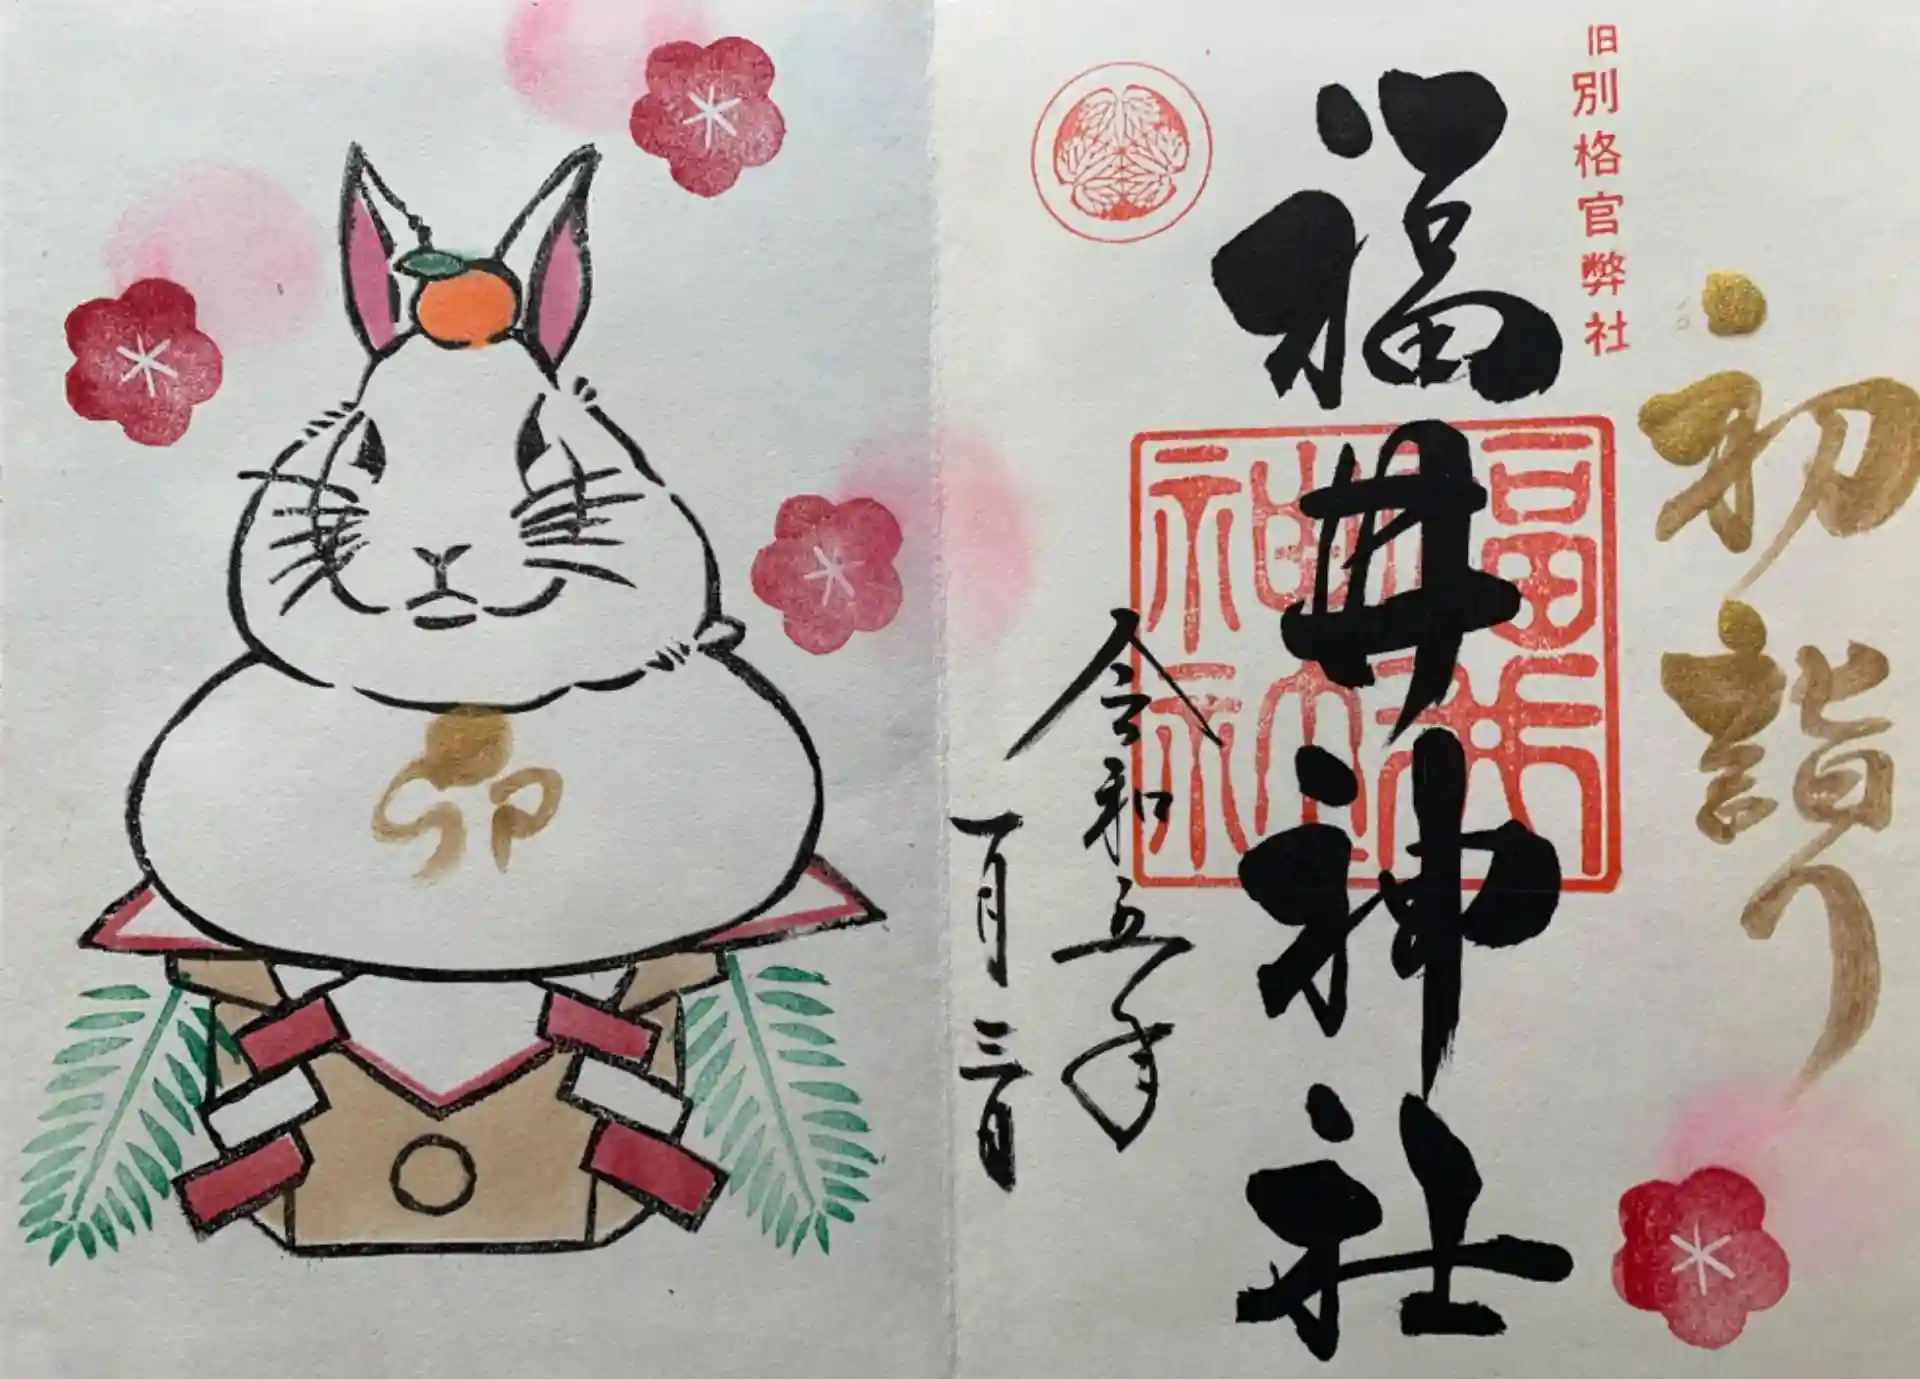 初詣り
旧別格官弊社
福井神社
福井神社神印
令和五年
一月三日
卯